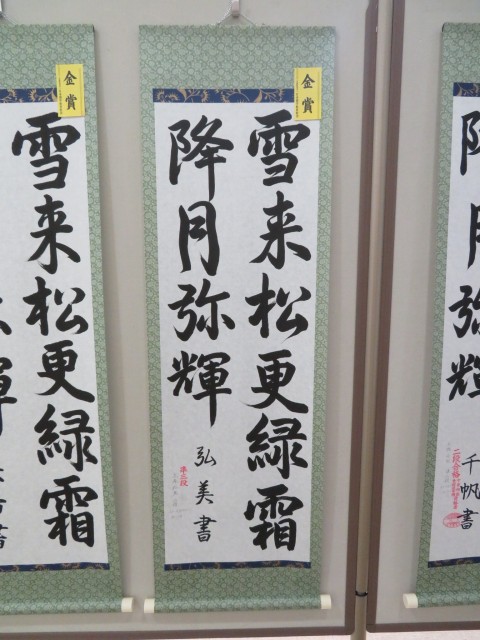 金賞
雪来松更緑霜
降月弥輝
弘美書
準三段
金賞
雪来松更緑霜
輝
書
降月弥輝
千帆書
二段合格